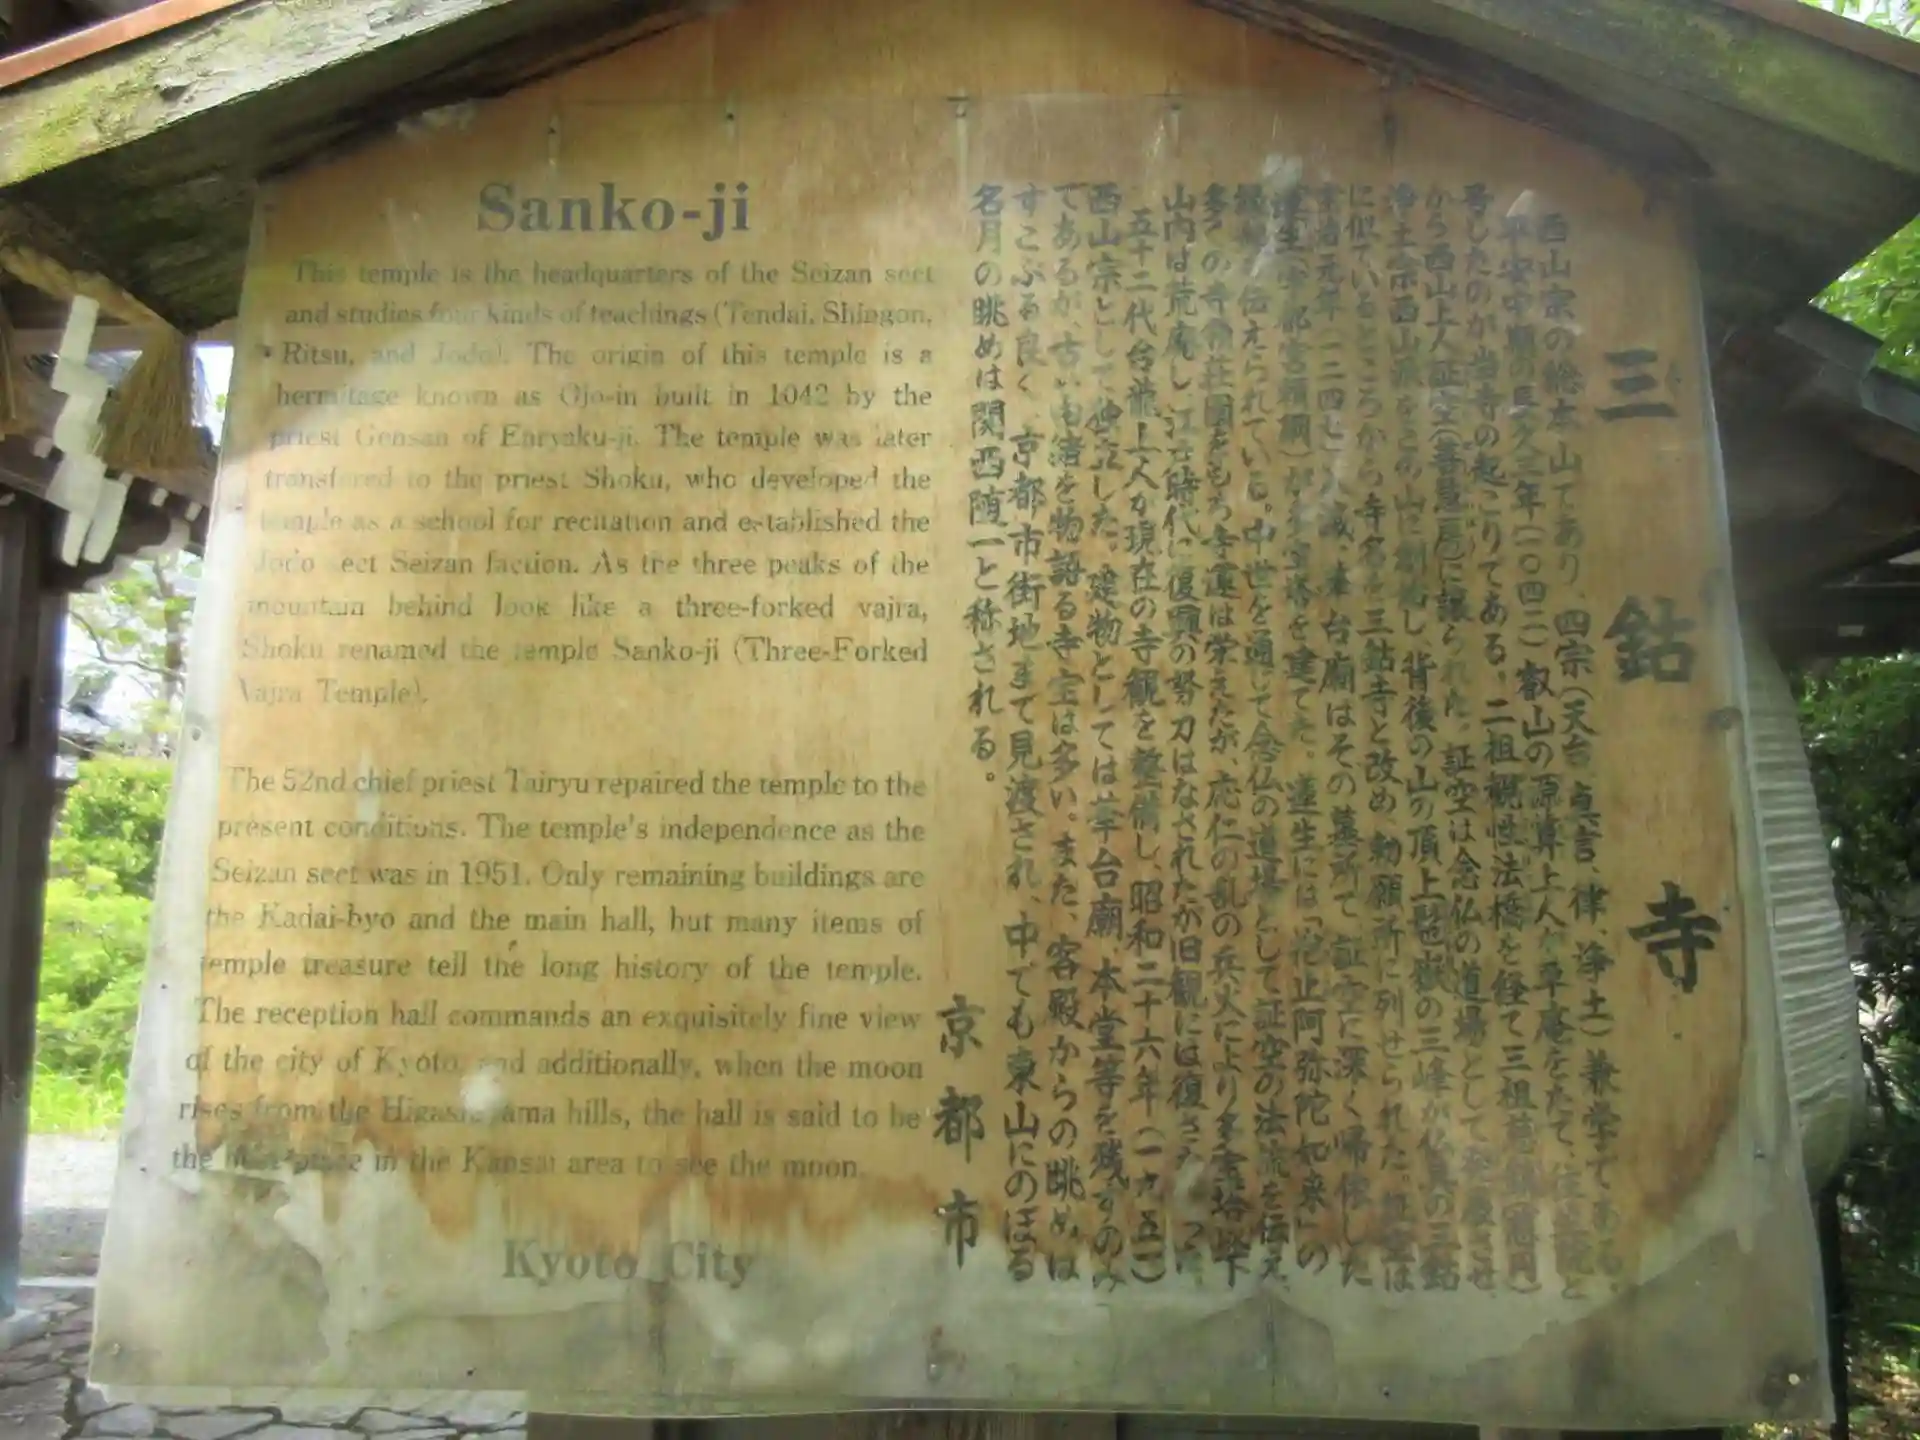 Sanko-ji
This temple is the headquarters of the Seizan sect
and studies four kinds of teachings (Tendai, Shingon,
Ritsu, and Jodo). The origin of this temple is a
hermitage known as Ojo-in built in 1042 by the
priest Gensan of Enryaku-ji. The temple was later
transfered to the priest Shoku, who developed the
temple as a school for recitation and established the
Jodo sect Seizan faction. As the three peaks of the
mountain behind look like a three-forked vajra,
Shoku renamed the temple Sanko-ji (Three-Forked
Vajra Temple).
The 52nd chief priest Tairyu repaired the temple to the
present conditions. The temple's independence as the
Seizan sect was in 1951. Only remaining buildings are
the Kadai-byo and the main hall, but many items of
temple treasure tell the long history of the temple.
The reception hall commands an exquisitely fine view
of the city of Kyoto, and additionally, when the moon
rises from the Higashiyama hills, the hall is said to be
the place in the Kansai area to see the moon.
Kyoto City
三鈷寺
西山宗の総本山であり、四宗(天台、真言、律、浄土)兼学である。
平安中期の長久三年(一〇四二)叡山の源算上人が草庵をたて、往生院と
号したのが当寺の起こりである。二祖観性法橋を経て三祖慈鎮(慈円)
から西山上人証空(善慧房)に譲られた。証空は念仏の道場として発展させ、
浄土宗西山派をこの山に創始し、背後の山の頂上 の三峰が仏具の三鈷
に似ているところから寺名を三鈷寺と改め、勅願所に列せられた。証空は
宝治元年(一二四七)入滅、華台廟はその墓所で、証空に深く帰依した
蓮生(宇都宮頼綱)が多宝塔を建てた。蓮生には「 止阿弥陀如来」の
伝えられている。中世を通じて念仏の道場として証空の法流を伝え、
多くの寺領荘園をもち寺運は栄えたが、応仁の乱の兵火により多宝塔以下
山内は荒廃し、江戸時代に復興の努力はなされたが旧観には復さなかった。
五十二代台龍上人が現在の寺観を整備し、昭和二十六年(一九五一)
西山宗として独立した。建物としては華台廟、本堂等を残すのみ
であるが、古い由緒を物語る寺宝は多い。また、客殿からの眺めは
すこぶる良く、京都市街地まで見渡され、中でも東山にのぼる
名月の眺めは関西随一と称される。
京都市